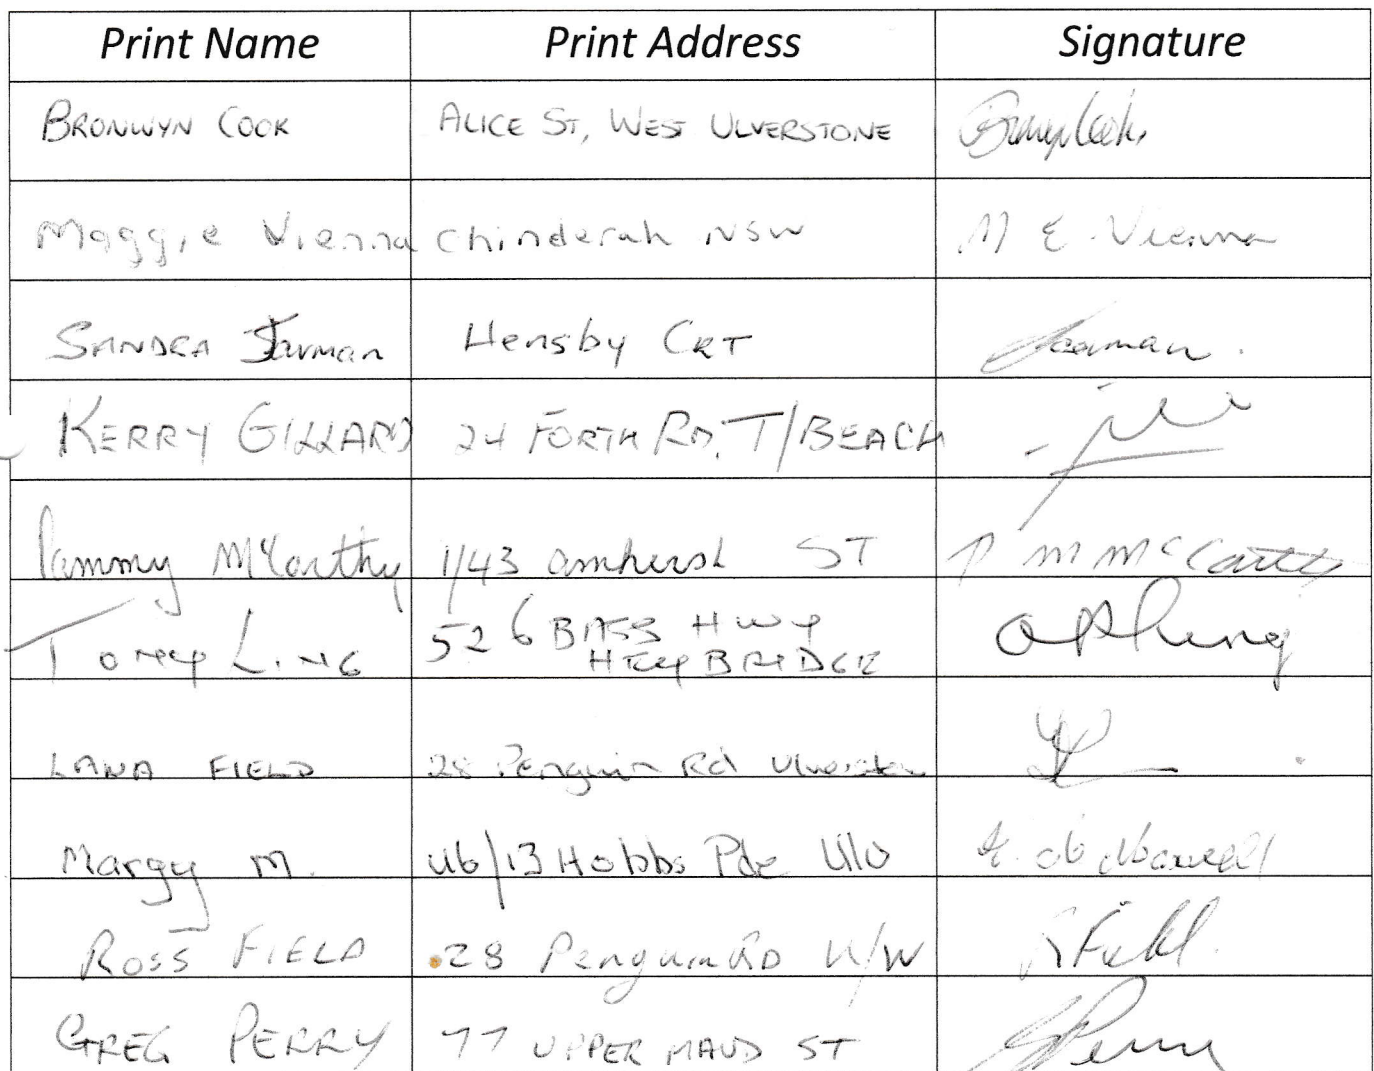 Print Name Print Address Signature
BRONWYN COOK ALICE ST, WEST ULVERSTONE
Maggie Vienna Chinderah NSW M E. Vienna
SANDRA Jarman Hensby CRT
KERRY GILLARD 24 FORTH RD, T/BEACH
Pammy McCarthy 1/43 Amherst ST P M McCarthy
Toney LING 526 BASS HWY
HEYBRIDGE
LANA FIELD 28 Penguin Rd Ulverstone
Margy M. U6/13 Hobbs Pde Ulv
ROSS FIELD 28 Penguin RD U/W R Field
GREG PERRY 77 UPPER MAUD ST G Perry